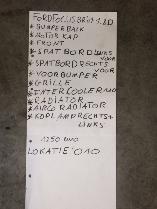 FORD FOCUS BRIO 1.20
* BUMPERBALK
* MOTOR KAP
* FRONT
* SPATBORD LINKS
VOOR
* SPATBORD RECHTS
VOOR
* VOORBUMPER
* GRILLE
* INTERCOOLER
* RADIATOR
* AIRCO RADIATOR
* KOPLAMP RECHTS +
LINKS
1250 EURO
LOKATIE 010